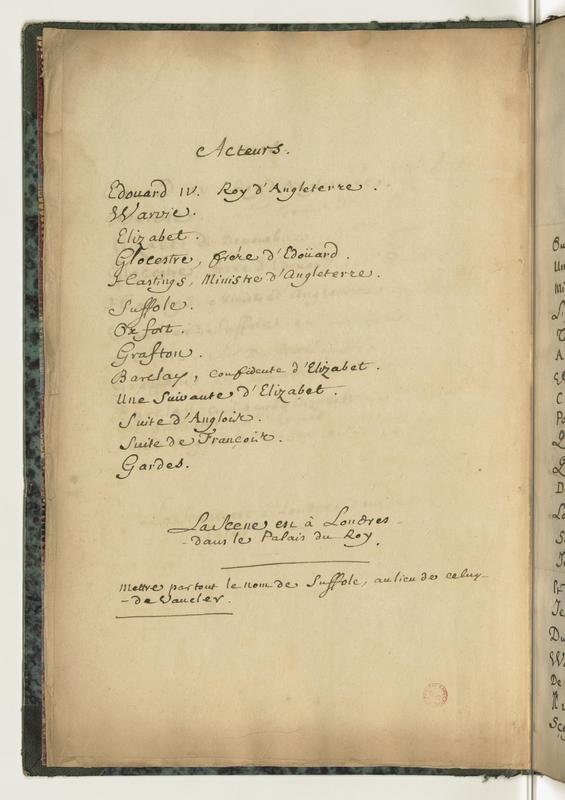 Acteurs.
Edouard IV. Roy d'Angleterre.
Warvic.
Elizabet.
Glocestre, frére d'Edoüard.
Hastings, Ministre d'Angleterre.
Suffolc.
Oxfort.
Grafton.
Barclay, confidente d'Elizabet.
Une Suivante d'Elizabet.
Suite d'Anglois.
Suite de François.
Gardes.
La Scene est à Londres
dans le Palais du Roy.
Mettre partout le nom de Suffolc, au lieu de celuy
de Vaucler.